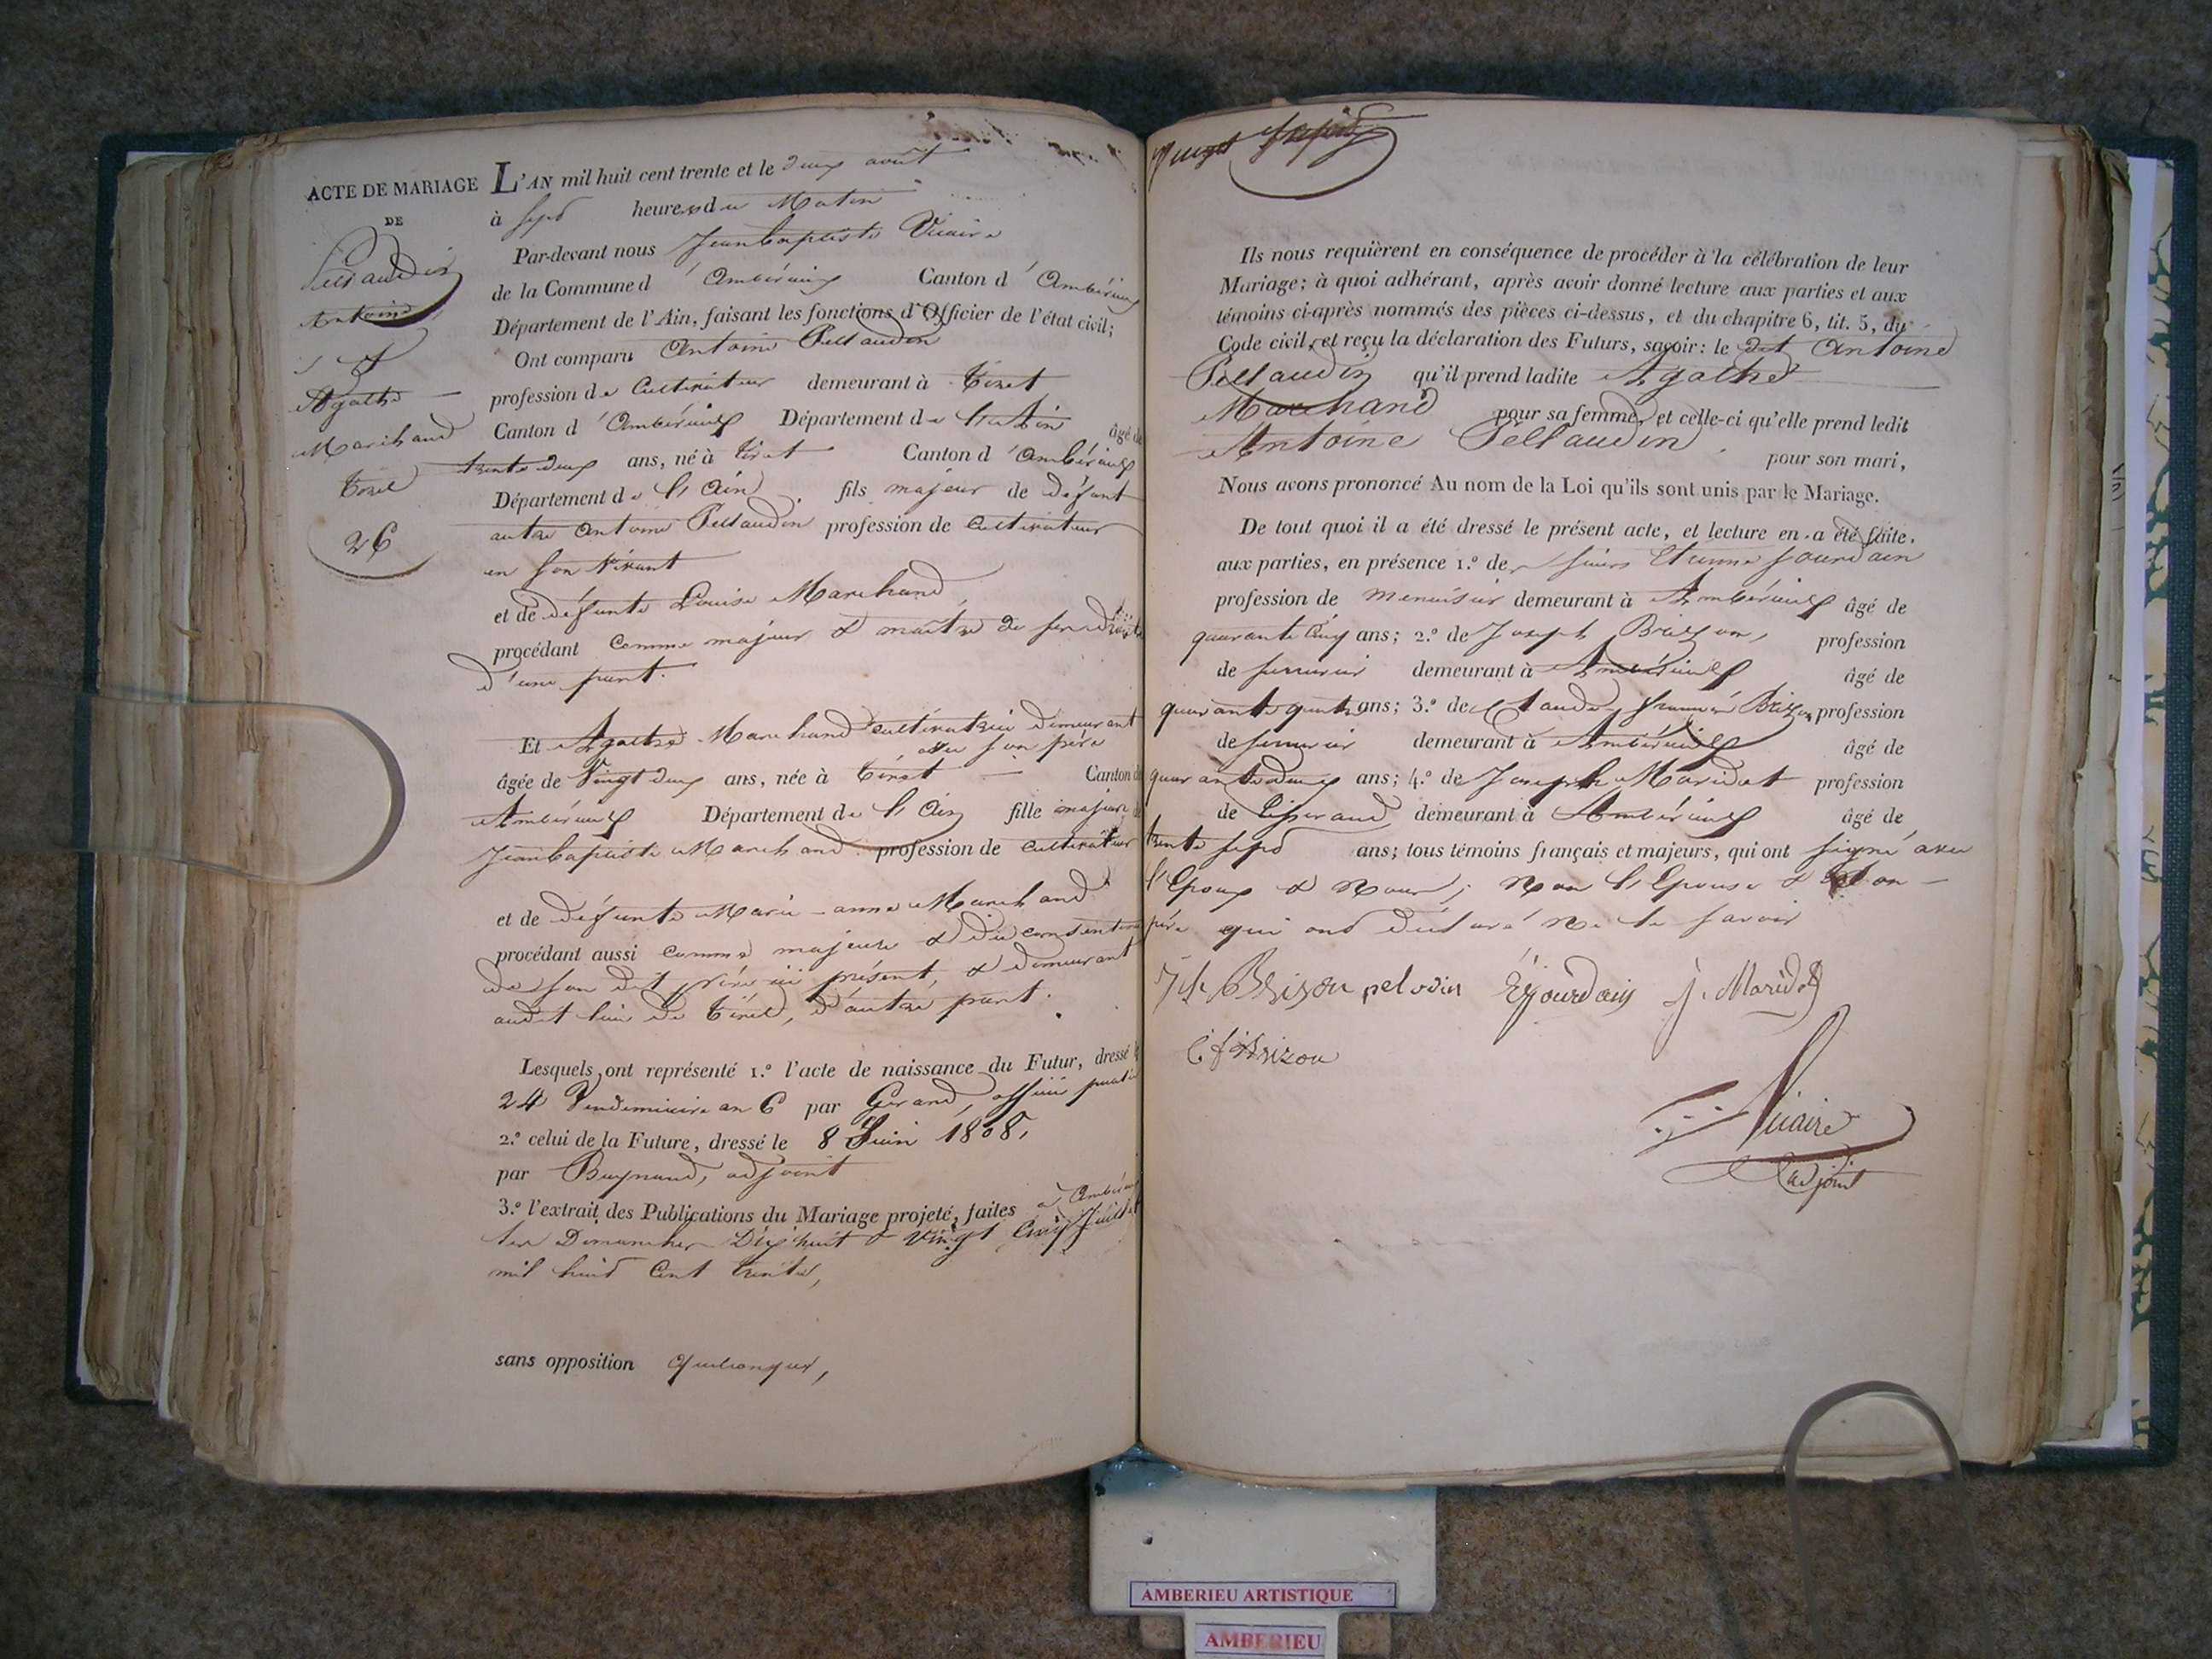 ACTE DE MARIAGE
DE
Pellaudin
Antoine
et
Agathe
Marchand
Tiret
26
L'AN mil huit cent trente et le deux août
à sept heures du Matin
Par-devant nous Jean baptiste Vicaire
de la Commune d'Ambérieux Canton d'Ambérieux
Département de l'Ain, faisant les fonctions d'Officier de l'état civil;
Ont comparu Antoine Pellaudin
profession de Cultivateur demeurant à Tiret
Canton d'Ambérieux Département de l'Ain âgé de
trente deux ans, né à Tiret Canton d'Ambérieux
Département de l'Ain fils majeur de défunt
autre Antoine Pellaudin profession de Cultivateur
en son vivant
et de défunte Louise Marchand,
procédant comme majeur & maître de ses droits
d'une part.
Et Agathe Marchand cultivatrice demeurant
avec son père
âgée de Vingt deux ans, née à Tiret Canton d
Ambérieux Département de l'Ain fille majeure de
Jean baptiste Marchand profession de Cultivateur
et de défunte Marie-anne Marchand
procédant aussi comme majeure & du consentement
de son dit père ici présent, & demeurant
audit lieu de Tiret, d'autre part.
Lesquels ont représenté 1.º l'acte de naissance du Futur, dressé le
24 Vendemiaire an 6 par Gerand, officier public
2.º celui de la Future, dressé le 8 Juin 1808,
par Buynand, adjoint
3.º l'extrait des Publications du Mariage projeté, faites à Ambérieux
les Dimanches Dix huit & Vingt Cinq Juillet
mil huit Cent trente,
sans opposition Quelconque,
Vingt sept
Ils nous requièrent en conséquence de procéder à la célébration de leur
Mariage; à quoi adhérant, après avoir donné lecture aux parties et aux
témoins ci-après nommés des pièces ci-dessus, et du chapitre 6, tit. 5, du
Code civil, et reçu la déclaration des Futurs, savoir: le dit Antoine
Pellaudin qu'il prend ladite Agathe
Marchand pour sa femme, et celle-ci qu'elle prend ledit
Antoine Pellaudin pour son mari,
Nous avons prononcé Au nom de la Loi qu'ils sont unis par le Mariage.
De tout quoi il a été dressé le présent acte, et lecture en a été faite.
aux parties, en présence 1.º de sieurs Etienne Jourdain
profession de menuisier demeurant à Ambérieux âgé de
quarante Cinq ans; 2.º de Joseph Brizon, profession
de serrurier demeurant à Ambérieux âgé de
quarante quatre ans; 3.º de Claude françois Brizon profession
de serrurier demeurant à Ambérieux âgé de
quarante deux ans; 4.º de Joseph Maridat profession
de demeurant à Ambérieux âgé de
trente sept ans; tous témoins français et majeurs, qui ont signé avec
l'Epoux & Nous; Non l'Epouse & son
père qui ont déclaré ne le savoir
Jh Brison pelodin E Jourdain J. Maridat
C f Brizon
Vicaire
adjoint
AMBERIEU ARTISTIQUE
AMBERIEU